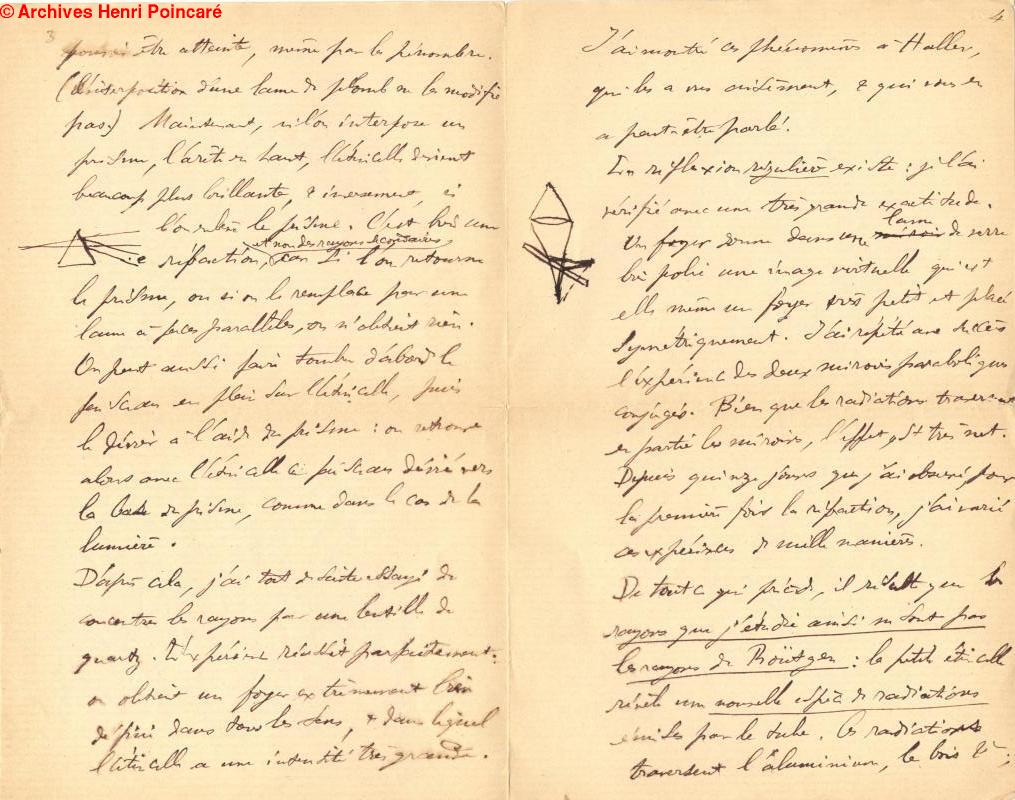 © Archives Henri Poincaré
3
être atteinte, même par la pénombre.
(L'interposition d'une lame de plomb ne la modifie
pas.) Maintenant, si l'on interpose un
prisme, l'arête en haut, l'étincelle devient
beaucoup plus brillante, & inversement, si
l'on enlève le prisme. C'est bien une
et non des rayons secondaires
réfraction, car si l'on retourne
le prisme, ou si on le remplace par une
lame à faces parallèles, on n'obtient rien.
On peut aussi faire tomber d'abord le
faisceau en plein sur l'étincelle, puis
le dévier à l'aide du prisme : on retrouve
alors avec l'étincelle ce faisceau dévié vers
la base du prisme, comme dans le cas de la
lumière.
D'après cela, j'ai tout de suite essayé de
concentrer les rayons par une lentille de
quartz. L'expérience réussit parfaitement :
on obtient un foyer extrêmement bien
défini dans tous les sens, & dans lequel
l'étincelle a une intensité très grande.
4
J'ai montré ces phénomènes à Haller,
qui les a vus aisément, & qui vous en
a peut-être parlé.
La réflexion régulière existe : je l'ai
vérifié avec une très grande exactitude.
lame
Un foyer donne dans une miroir de verre
bien polie une image virtuelle qui est
elle même un foyer très petit et placé
symétriquement. J'ai répété avec succès
l'expérience des deux miroirs paraboliques
conjugés. Bien que les radiations traversent
en partie les miroirs, l'effet est très net.
Depuis quinze jours que j'ai observé pour
la première fois la réfraction, j'ai varié
ces expériences de mille manières.
De tout ce qui précède, il résulte que les
rayons que j'étudie ainsi ne sont pas
les rayons de Röntgen : la petite étincelle
révèle une nouvelle espèce de radiations
émises par le tube. Ces radiations
traversent l'aluminium, le bois &c ;